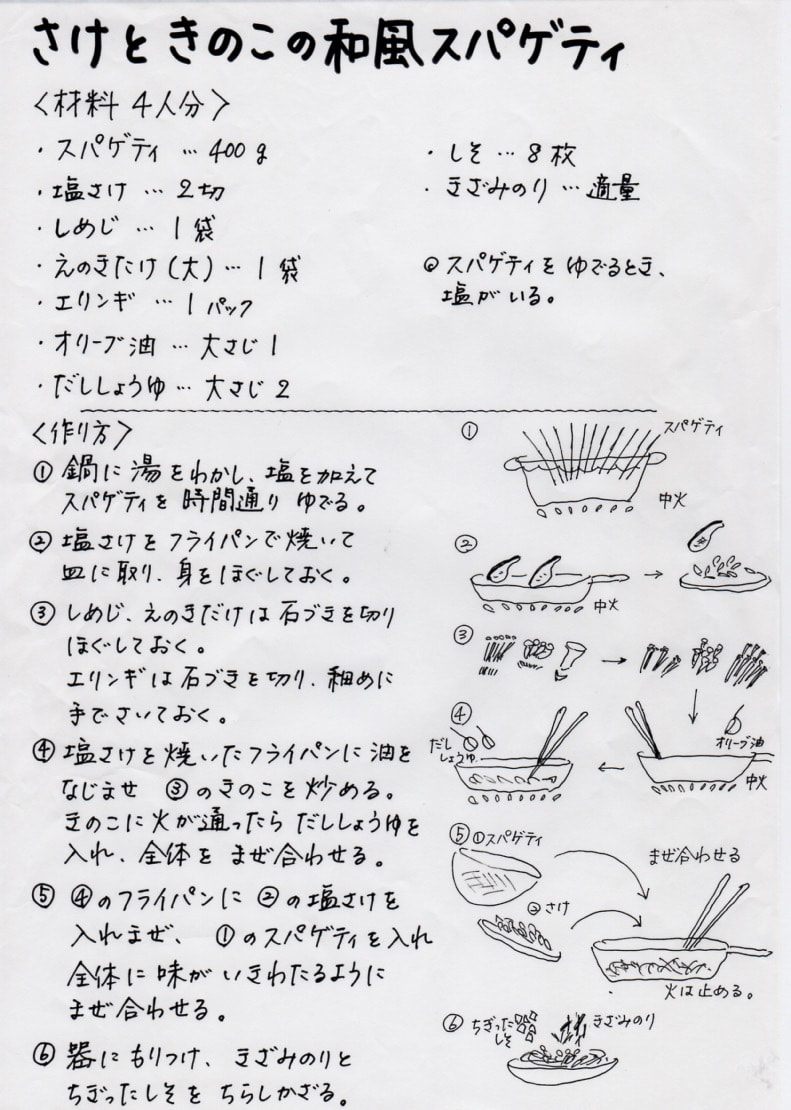 さけときのこの和風スパゲティ
〈材料 4人分〉
・スパゲティ … 400g
・塩さけ … 2切
・しめじ … 1袋
・えのきたけ(大)… 1袋
・エリンギ … 1パック
・オリーブ油 … 大さじ1
・だししょうゆ… 大さじ2
・しそ … 8枚
・きざみのり … 適量
◎スパゲティをゆでるとき、
塩がいる。
〈作り方〉
① 鍋に湯をわかし、塩を加えて
スパゲティを時間通りゆでる。
② 塩さけをフライパンで焼いて
皿に取り、身をほぐしておく。
③ しめじ、えのきだけは石づきを切り
ほぐしておく。
エリンギは石づきを切り、細めに
手でさいておく。
④ 塩さけを焼いたフライパンに油を
なじませ ③のきのこを炒める。
きのこに火が通ったらだししょうゆを
入れ、全体をまぜ合わせる。
⑤ ④のフライパンに②の塩さけを
入れまぜ、①のスパゲティを入れ
全体に味がいきわたるように
まぜ合わせる。
⑥ 器にもりつけ、きざみのりと
ちぎったしそをちらしかざる。
① スパゲティ
中火
②
中火
③
④
だし
しょうゆ
オリーブ油
中火
⑤ ①スパゲティ
まぜ合わせる
②さけ
火は止める。
⑥ ちぎった
しそ
きざみのり